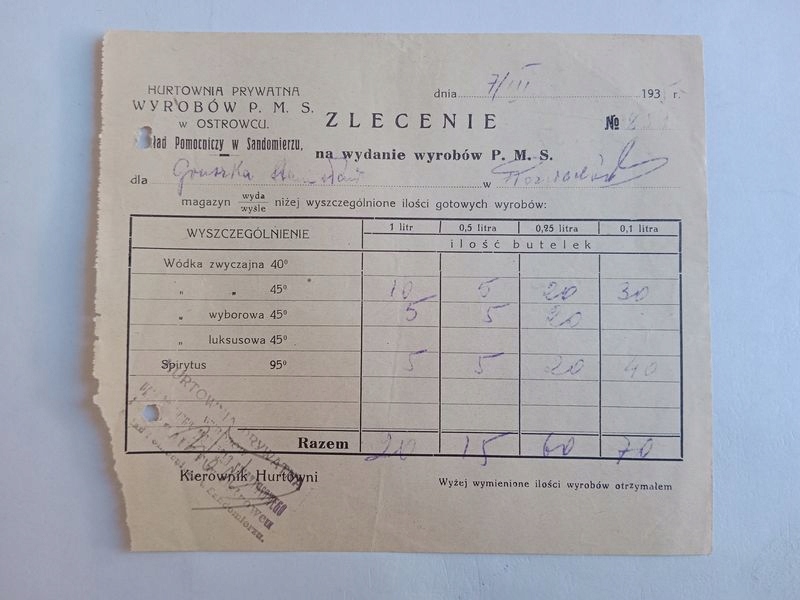 HURTOWNIA PRYWATNA
WYROBÓW P. M. S.
w OSTROWCU.
kład Pomocniczy w Sandomierzu,
dnia 7/III 193 r.
ZLECENIE №
na wydanie wyrobów P. M. S.
dla Gruszka w
magazyn wyda/wyśle niżej wyszczególnione ilości gotowych wyrobów:
WYSZCZEGÓLNIENIE 1 litr 0,5 litra 0,25 litra 0,1 litra
ilość butelek
Wódka zwyczajna 40⁰
„ „ 45⁰ 10 5 20 30
„ wyborowa 45⁰ 5 5 20
„ luksusowa 45⁰
Spirytus 95⁰ 5 5 20 40
Razem 20 15 60 70
Kierownik Hurtowni
Wyżej wymienione ilości wyrobów otrzymałem
HURTOWNIA PRYWATNA